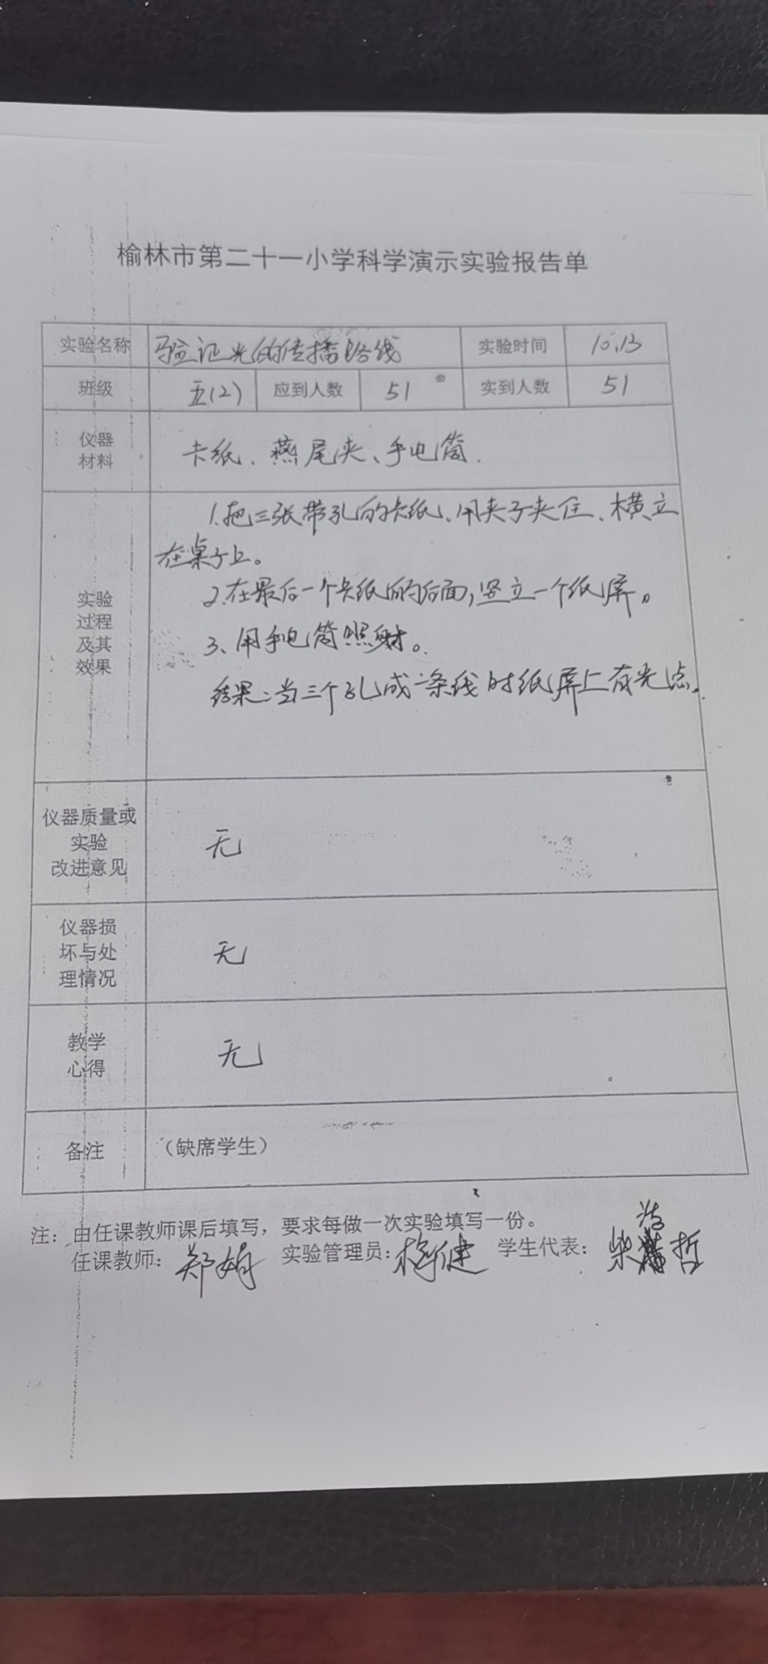 榆林市第二十一小学科学演示实验报告单
实验名称 验证光的传播路线 实验时间 10.13
班级 五(2) 应到人数 51 实到人数 51
仪器
材料
卡纸、燕尾夹、手电筒.
实验
过程
及其
效果
1.把三张带孔的卡纸、用夹子夹住、横立
在桌子上。
2.在最后一个卡纸的后面,竖立一个纸屏。
3、用手电筒照射。
结果:当三个孔成一条线时纸屏上有光点.
仪器质量或
实验
改进意见
无
仪器损
坏与处
理情况
无
教学
心得
无
备注 (缺席学生)
注: 由任课教师课后填写,要求每做一次实验填写一份。
任课教师: 郑娟 实验管理员: 学生代表: 柴 哲